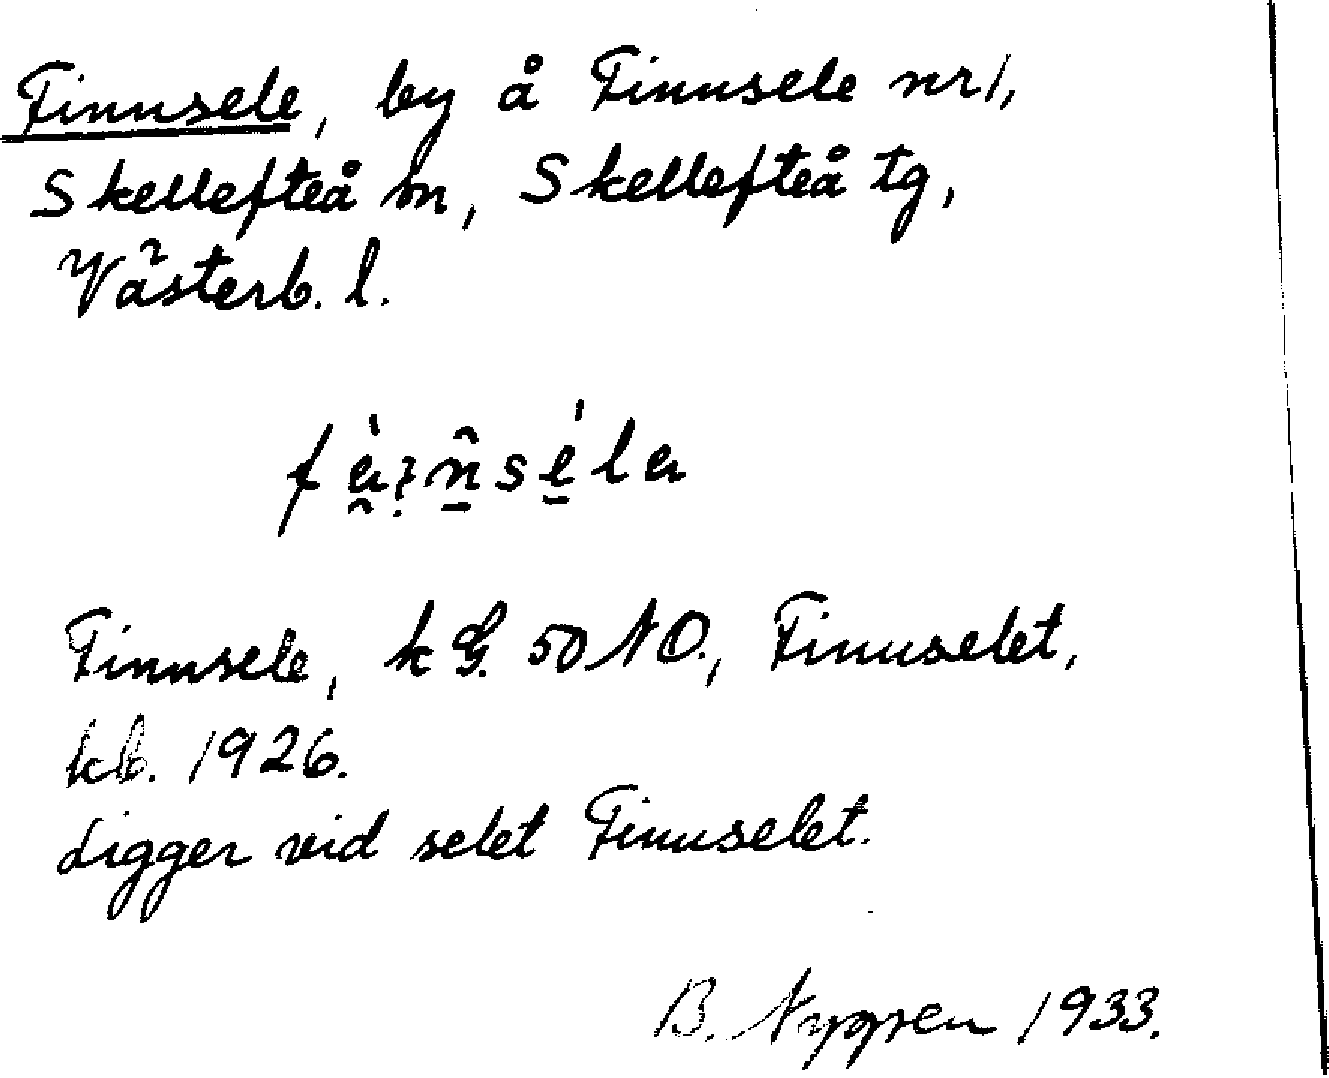 Finnsele, by å Finnsele nr 1,
Skellefteå sn, Skellefteå tg,
Västerb. l.
Finnsele, k G. 50 NO., Finnselet,
kb. 1926.
Ligger vid selet Finnselet.
B. Nygren 1933.